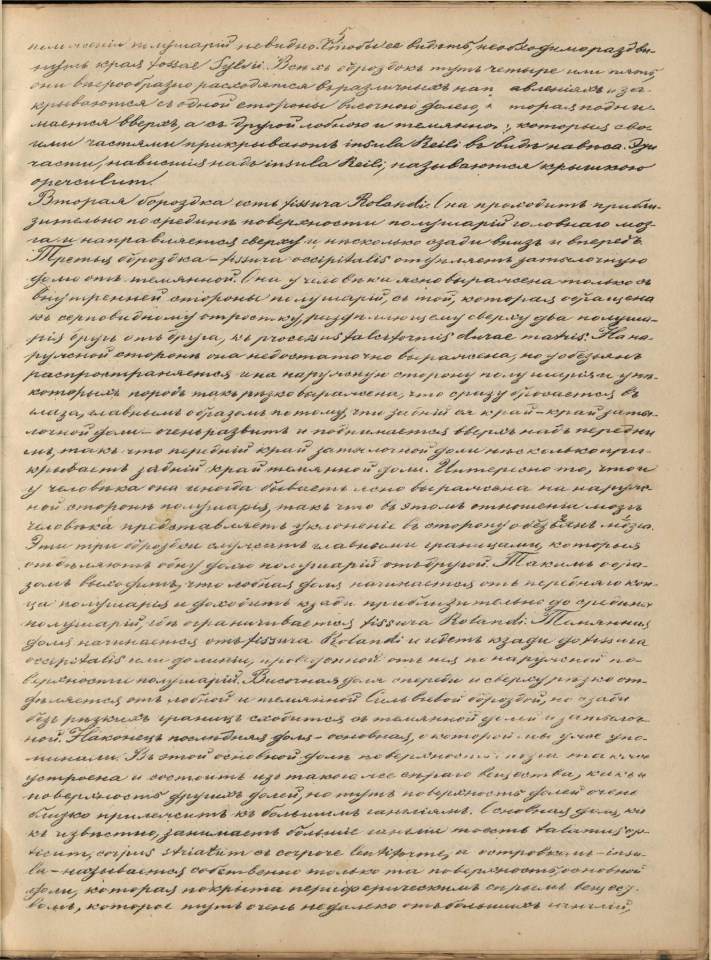 5
положенія полушарій не видно. Чтобы ее видѣть, необходимо раздви-
нуть края fossae Sylvii. Всѣхъ бороздокъ тутъ четыре или пять,
они вѣерообразно расходятся въ различныхъ нап авленіяхъ и за-
крываются съ одной стороны височной долею, к торая подни-
мается вверхъ, а съ другой лобною и темянно , которыя сво-
ими частями прикрываютъ insula Reili въ видѣ навѣса. Эти
части, нависшія надъ insula Reili, называются крышкою
operculum.
Вторая бороздка есть fissura Rolandi. Она проходитъ прибли-
зительно по срединѣ поверхности полушарій головнаго моз-
га и направляется сверху и нѣсколько сзади внизъ и впередъ.
Третья бороздка – fissura occipitalis отдѣляетъ затылочную
долю отъ темянной. Она у человѣка ясно выражена только съ
внутренней стороны полушарій, съ той, которая обращена
къ серповидному отростку, раздѣляющему сверху два полуша-
рія другъ отъ друга, къ processus falciformis durae matris. На на-
ружной сторонѣ она недостаточно выражена, но у обезьянъ
распространяется и на наружную сторону полушарія и у нѣ-
которыхъ породъ такъ рѣзко выражена, что сразу бросается въ
глаза, главнымъ образомъ потому, что задній ея край – край заты-
лочной доли – очень развитъ и поднимается вверхъ надъ передни
мъ, такъ что передній край затылочной доли нѣсколько при-
крываетъ задній край темянной доли. Интересно то, что и
у человѣка она иногда бываетъ ясно выражена на наруж-
ной сторонѣ полушарія, такъ что въ этомъ отношеніи мозгъ
человѣка представляетъ уклоненіе въ сторону обезьян. мозга.
Эти три бороздки служатъ главными границами, которыя
отдѣляютъ одну долю полушарій отъ другой. Такимъ обра-
зомъ выходитъ, что лобная доля начинается отъ передняго кон-
ца полушарія и доходитъ кзади приблизительно до средины
полушарій, гдѣ ограничивается fissura Rolandi. Темянная
доля начинается отъ fissura Rolandi и идетъ кзади до fissura
occipitalis или до линіи, проведенной отъ нея по наружной по-
верхности полушарій. Височная доля спереди и сверху рѣзко от-
дѣляется отъ лобной и темянной Сильвіевой бороздой, но сзади
безъ рѣзкихъ границъ сходится съ темянной долей и затылоч-
ной. Наконецъ послѣдняя доля – основная, о которой мы уже упо-
минали. Въ этой основной долѣ поверхность мозга также
устроена и состоитъ изъ такого же сѣраго вещества, какъ и
поверхность другихъ долей, но тутъ поверхность долей очень
близко прилежитъ къ большимъ гангліямъ. Основная доля, ка
къ извѣстно, занимаетъ большіе гангліи то есть talamus op-
ticum, corpus striatum съ corpore lentiforme, а островкомъ – insu-
la – называется собственно только та поверхность основной
доли, которая покрыта периферическимъ сѣрымъ вещест-
вомъ, которое тутъ очень недалеко отъ большихъ ганглій,